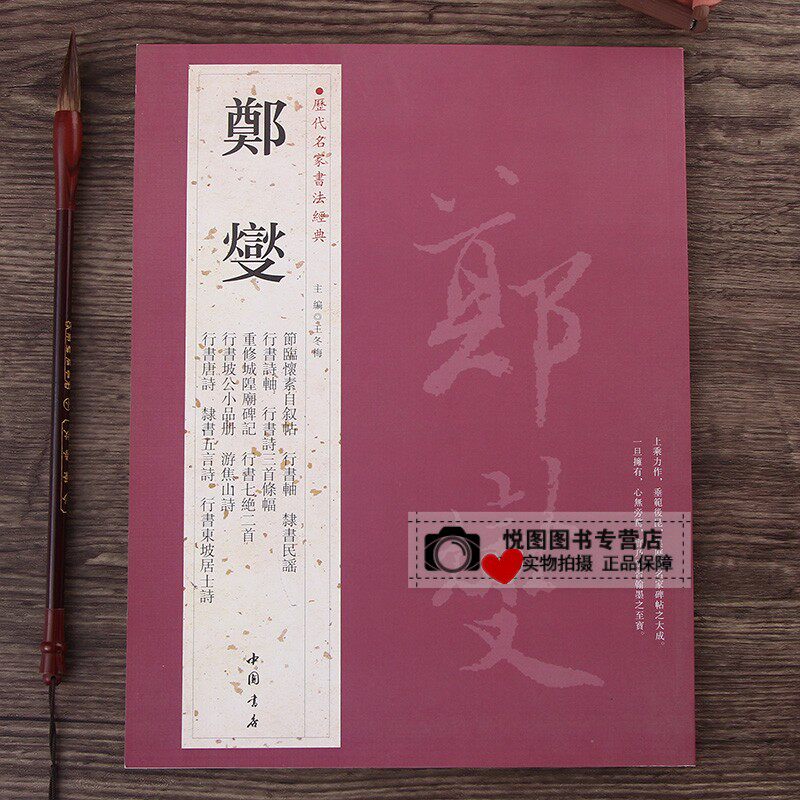 歷代名家書法經典
鄭燮
主編◎王冬梅
節臨懷素自叙帖 行書軸 隸書民謡
行書詩軸 行書詩三首條幅
重修城隍廟碑記 行書七絶二首
行書坡公小品册 游焦山詩
行書唐詩 隸書五言詩 行書東坡居士詩
中国書店
鄭燮
上乘力作，垂範後昆，名家碑帖之大成。
一旦擁有，心無旁翰墨之至寶。
悦图图书专营店
实物拍摄 正品保障